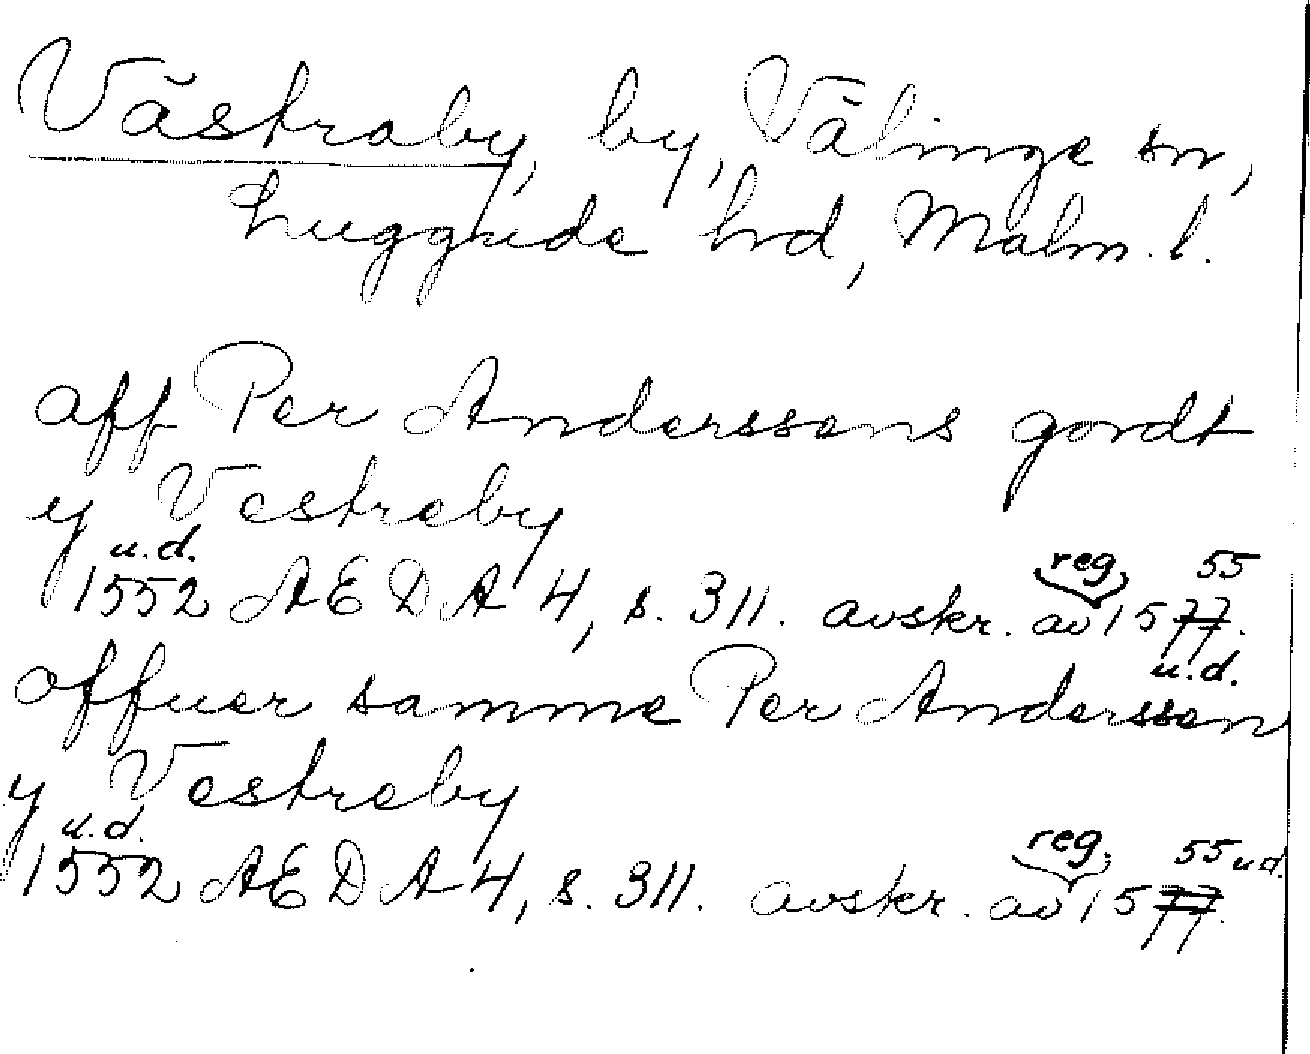 Västraby, by, Välinge sn,
Luggude hd, Malm. l.
aff Per Anderssens gordt
y Vestreby
u.d. reg 55
1552 AEDA 4, s. 311. avskr. av 1577.
u.d.
offuer samme Per Anderssen
y Vestreby
u.d. reg 55 u.d.
1552 AEDA 4, s. 311. avskr. av 1577.